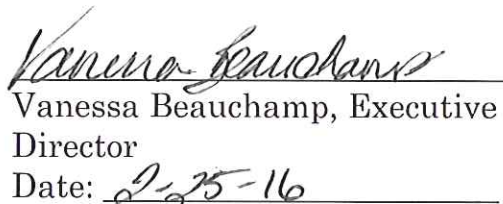 Vanessa Beauchamp
Vanessa Beauchamp, Executive
Director
Date: 2-25-16